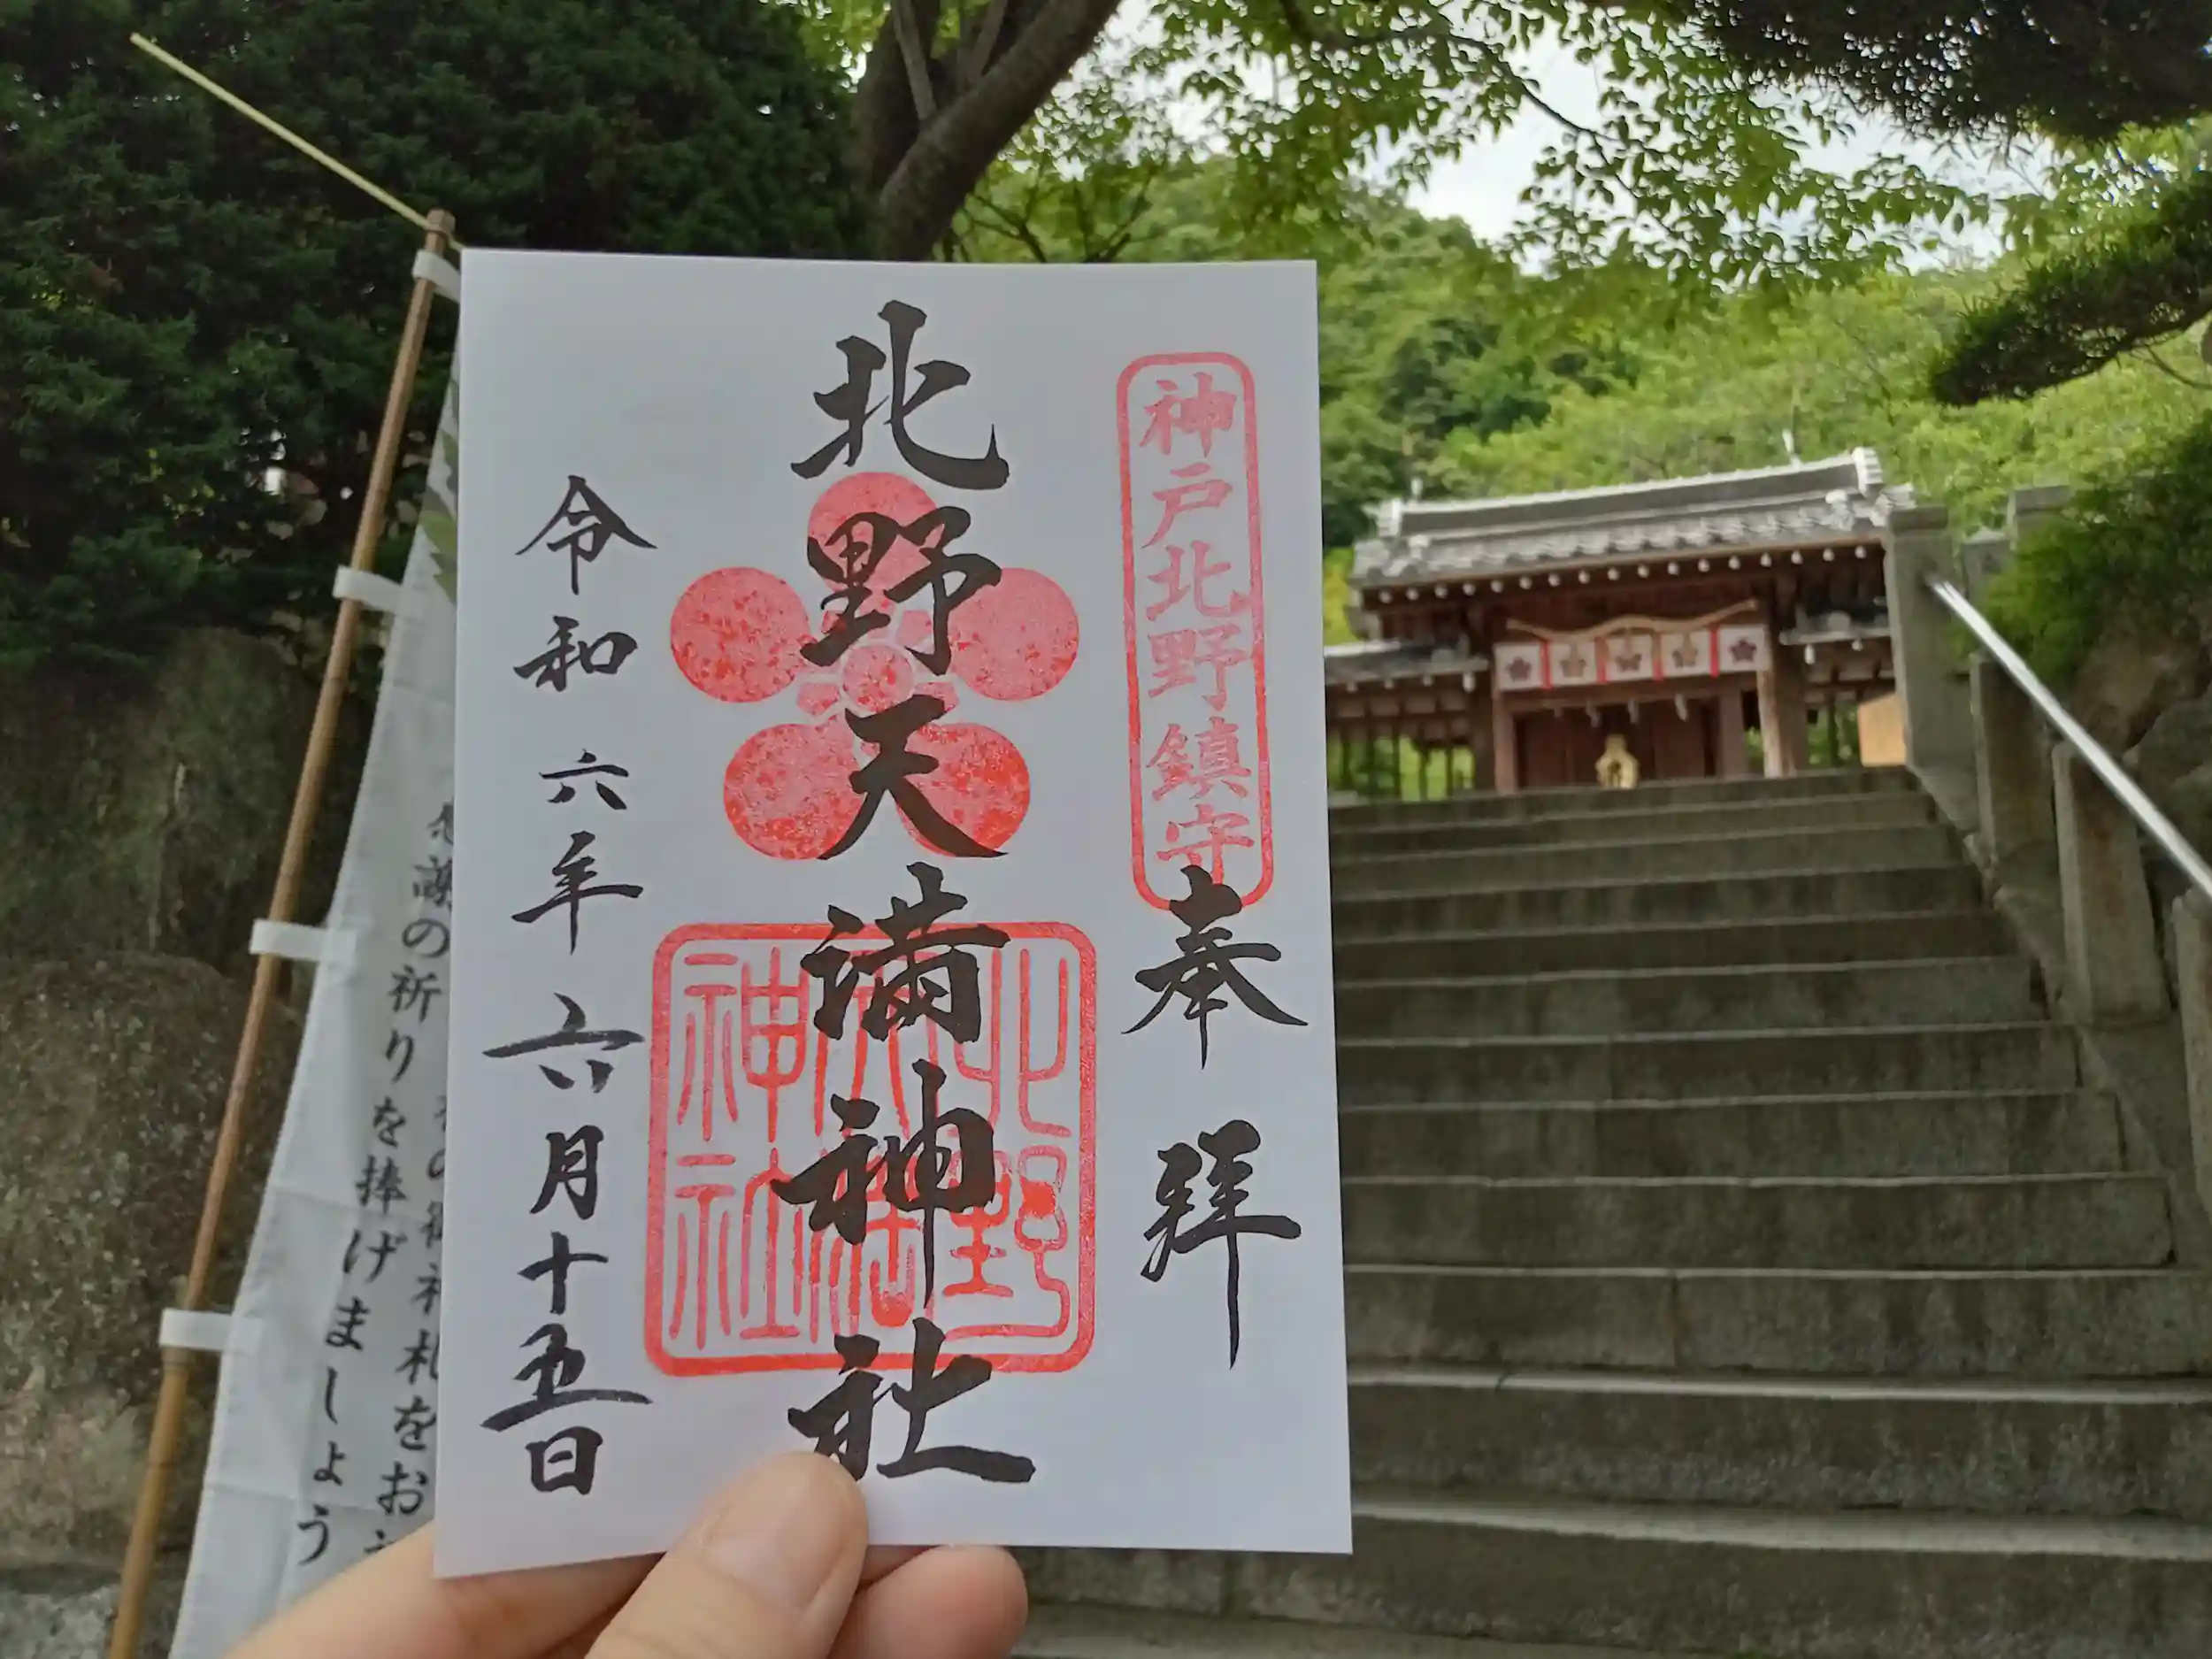 神戸北野鎮守
奉拝
北野天満神社
北野天満神社
令和六年六月十五日
の祈りを捧げましょう